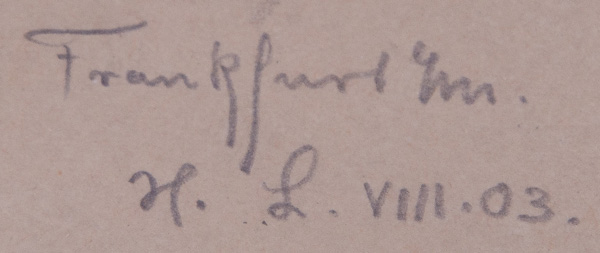 Frankfurt a/m.
H. L. VIII.03.